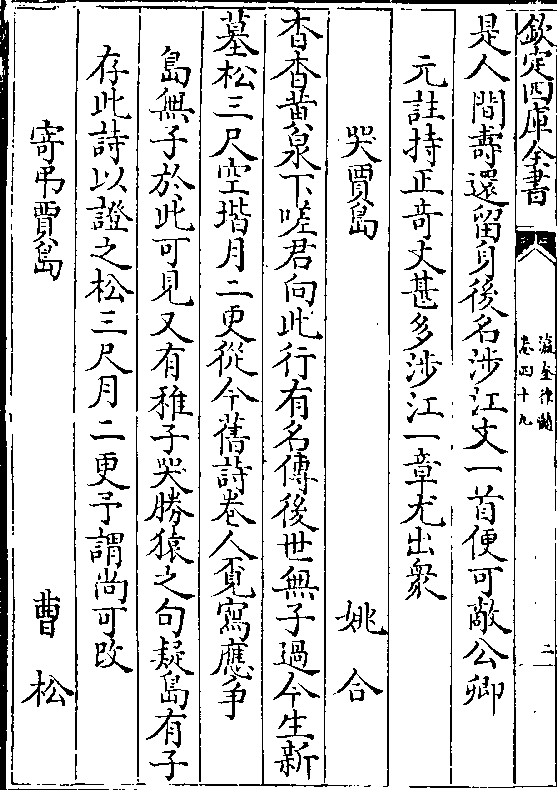 欽定四庫全書
瀛奎律髓
卷四十九
二
是人間壽還留身後名涉江文一首便可敵公卿
元註持正奇文甚多涉江一章尤出衆
哭賈島 姚合
杳杳黄泉下嗟君向此行有名傳後世無子過今生新
墓松三尺空堦月二更從今舊詩卷人覔寫應争
島無子於此可見又有稚子哭勝猿之句疑島有子
存此詩以證之松三尺月二更予謂尚可改
寄弔賈島 曹松